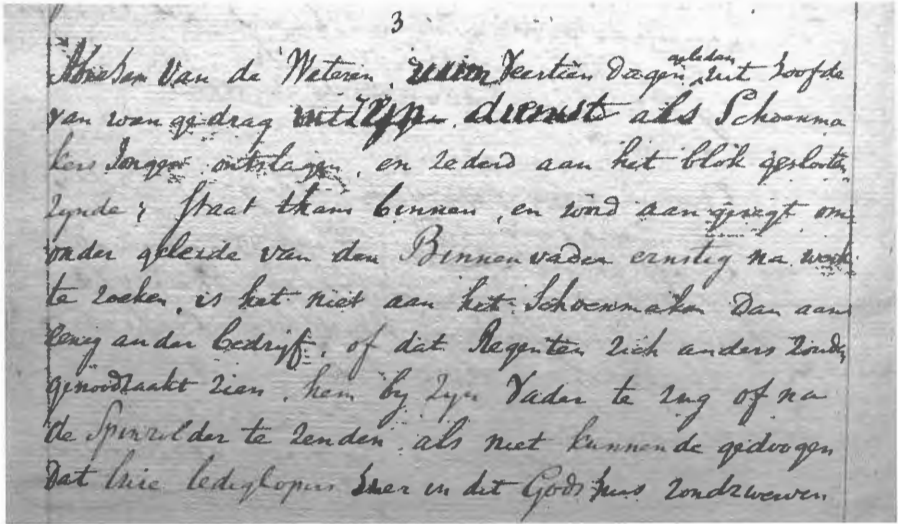 3
Abraham Van de Wateren, ruim Veertien dagen geleden uit hoofde
van wangedrag uit zijn dienst als Schoenma
kers Jongen ontslagen, en zederd aan het blok geslooten
zynde, staat thans binnen, en word aangezegt om
onder geleide van den Binnenvader ernstig na werk
te zoeken, is het niet aan het Schoenmaken Dan aan
eenig ander bedrijf, of dat Regenten zich anders zouden
genoodzaakt zien, hem by zyn Vader te rug of na
de Spinzolder te zenden, als niet kunnende gedoogen
Dat luie lediglopers hier in dit Godshuis rondzwerven